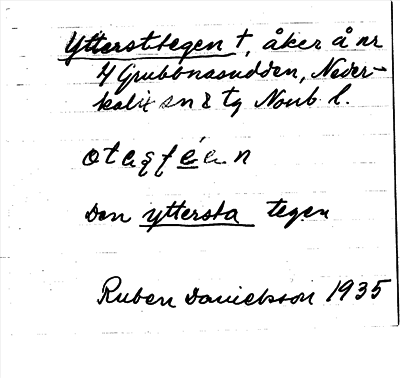 Yttersttegen †, åker å nr
4 Grubbnasudden, Neder-
kalix sn & tg Norrb. l.
Den yttersta tegen
Ruben Danielsson 1935